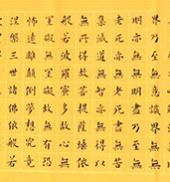 界乃至無意識界無無
明亦無無明盡乃至無
老死亦無老死盡無苦
集滅道無智亦無得以
無所得故菩提薩埵依
般若波羅蜜多故心無
罣礙無罣礙故無有恐
怖遠離顛倒夢想究竟
涅槃三世諸佛依般若